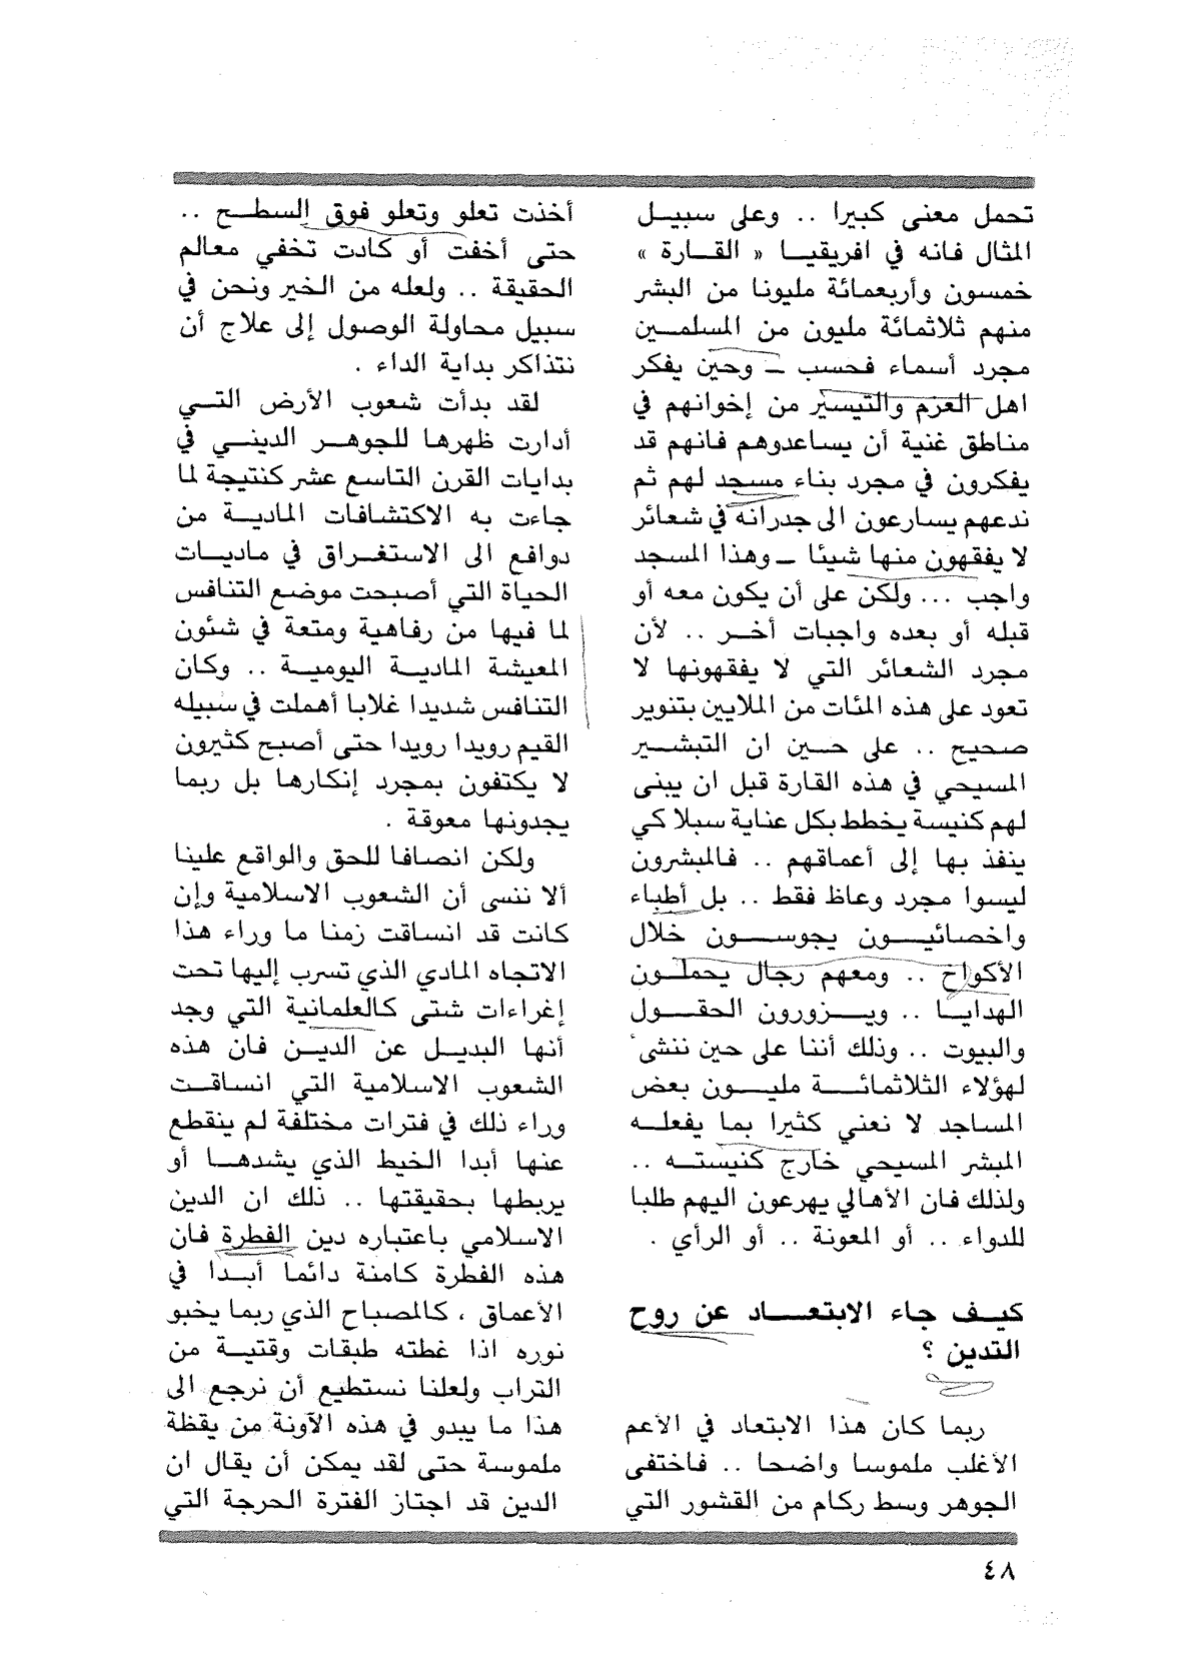 تحمل معنى كبيرا .. وعلى سبيل
المثال فانه في افريقيا « القارة »
خمسون وأربعمائة مليونا من البشر
منهم ثلاثمائة مليون من المسلمين
مجرد أسماء فحسب ــ وحين يفكر
اهل العزم والتيسير من إخوانهم في
مناطق غنية أن يساعدوهم فانهم قد
يفكرون في مجرد بناء مسجد لهم ثم
ندعهم يسارعون الى جدرانه في شعائر
لا يفقهون منها شيئا ــ وهذا المسجد
واجب ... ولكن على أن يكون معه أو
قبله أو بعده واجبات أخر .. لأن
مجرد الشعائر التي لا يفقهونها لا
تعود على هذه المئات من الملايين بتنوير
صحيح .. على حين ان التبشير
المسيحي في هذه القارة قبل ان يبنى
لهم كنيسة يخطط بكل عناية سبلا كي
ينفذ بها إلى أعماقهم .. فالمبشرون
ليسوا مجرد وعاظ فقط .. بل أطباء
واخصائيون يجوسون خلال
الأكواخ .. ومعهم رجال يحملون
الهدايا .. ويزورون الحقول
والبيوت .. وذلك أننا على حين ننشىء
لهؤلاء الثلاثمائة مليون بعض
المساجد لا نعني كثيرا بما يفعله
المبشر المسيحي خارج كنيسته ..
ولذلك فان الأهالي يهرعون اليهم طلبا
للدواء .. أو المعونة .. أو الرأي .
كيف جاء الابتعاد عن روح
التدين ؟
ربما كان هذا الابتعاد في الأعم
الأغلب ملموسا واضحا .. فاختفى
الجوهر وسط ركام من القشور التي
أخذت تعلو وتعلو فوق السطح ..
حتى أخفت أو كادت تخفي معالم
الحقيقة .. ولعله من الخير ونحن في
سبيل محاولة الوصول إلى علاج أن
نتذاكر بداية الداء .
لقد بدأت شعوب الأرض التي
أدارت ظهرها للجوهر الديني في
بدايات القرن التاسع عشر كنتيجة لما
جاءت به الاكتشافات المادية من
دوافع الى الاستغراق في ماديات
الحياة التي أصبحت موضع التنافس
لما فيها من رفاهية ومتعة في شئون
المعيشة المادية اليومية .. وكان
التنافس شديدا غلابا أهملت في سبيله
القيم رويدا رويدا حتى أصبح كثيرون
لا يكتفون بمجرد إنكارها بل ربما
يجدونها معوقة .
ولكن انصافا للحق والواقع علينا
ألا ننسى أن الشعوب الاسلامية وإن
كانت قد انساقت زمنا ما وراء هذا
الاتجاه المادي الذي تسرب إليها تحت
إغراءات شتى كالعلمانية التي وجد
أنها البديل عن الدين فان هذه
الشعوب الاسلامية التي انساقت
وراء ذلك في فترات مختلفة لم ينقطع
عنها أبدا الخيط الذي يشدها أو
يربطها بحقيقتها .. ذلك ان الدين
الاسلامي باعتباره دين الفطرة فان
هذه الفطرة كامنة دائما أبدا في
الأعماق ، كالمصباح الذي ربما يخبو
نوره اذا غطته طبقات وقتية من
التراب ولعلنا نستطيع أن نرجع الى
هذا ما يبدو في هذه الآونة من يقظة
ملموسة حتى لقد يمكن أن يقال ان
الدين قد اجتاز الفترة الحرجة التي
٤٨